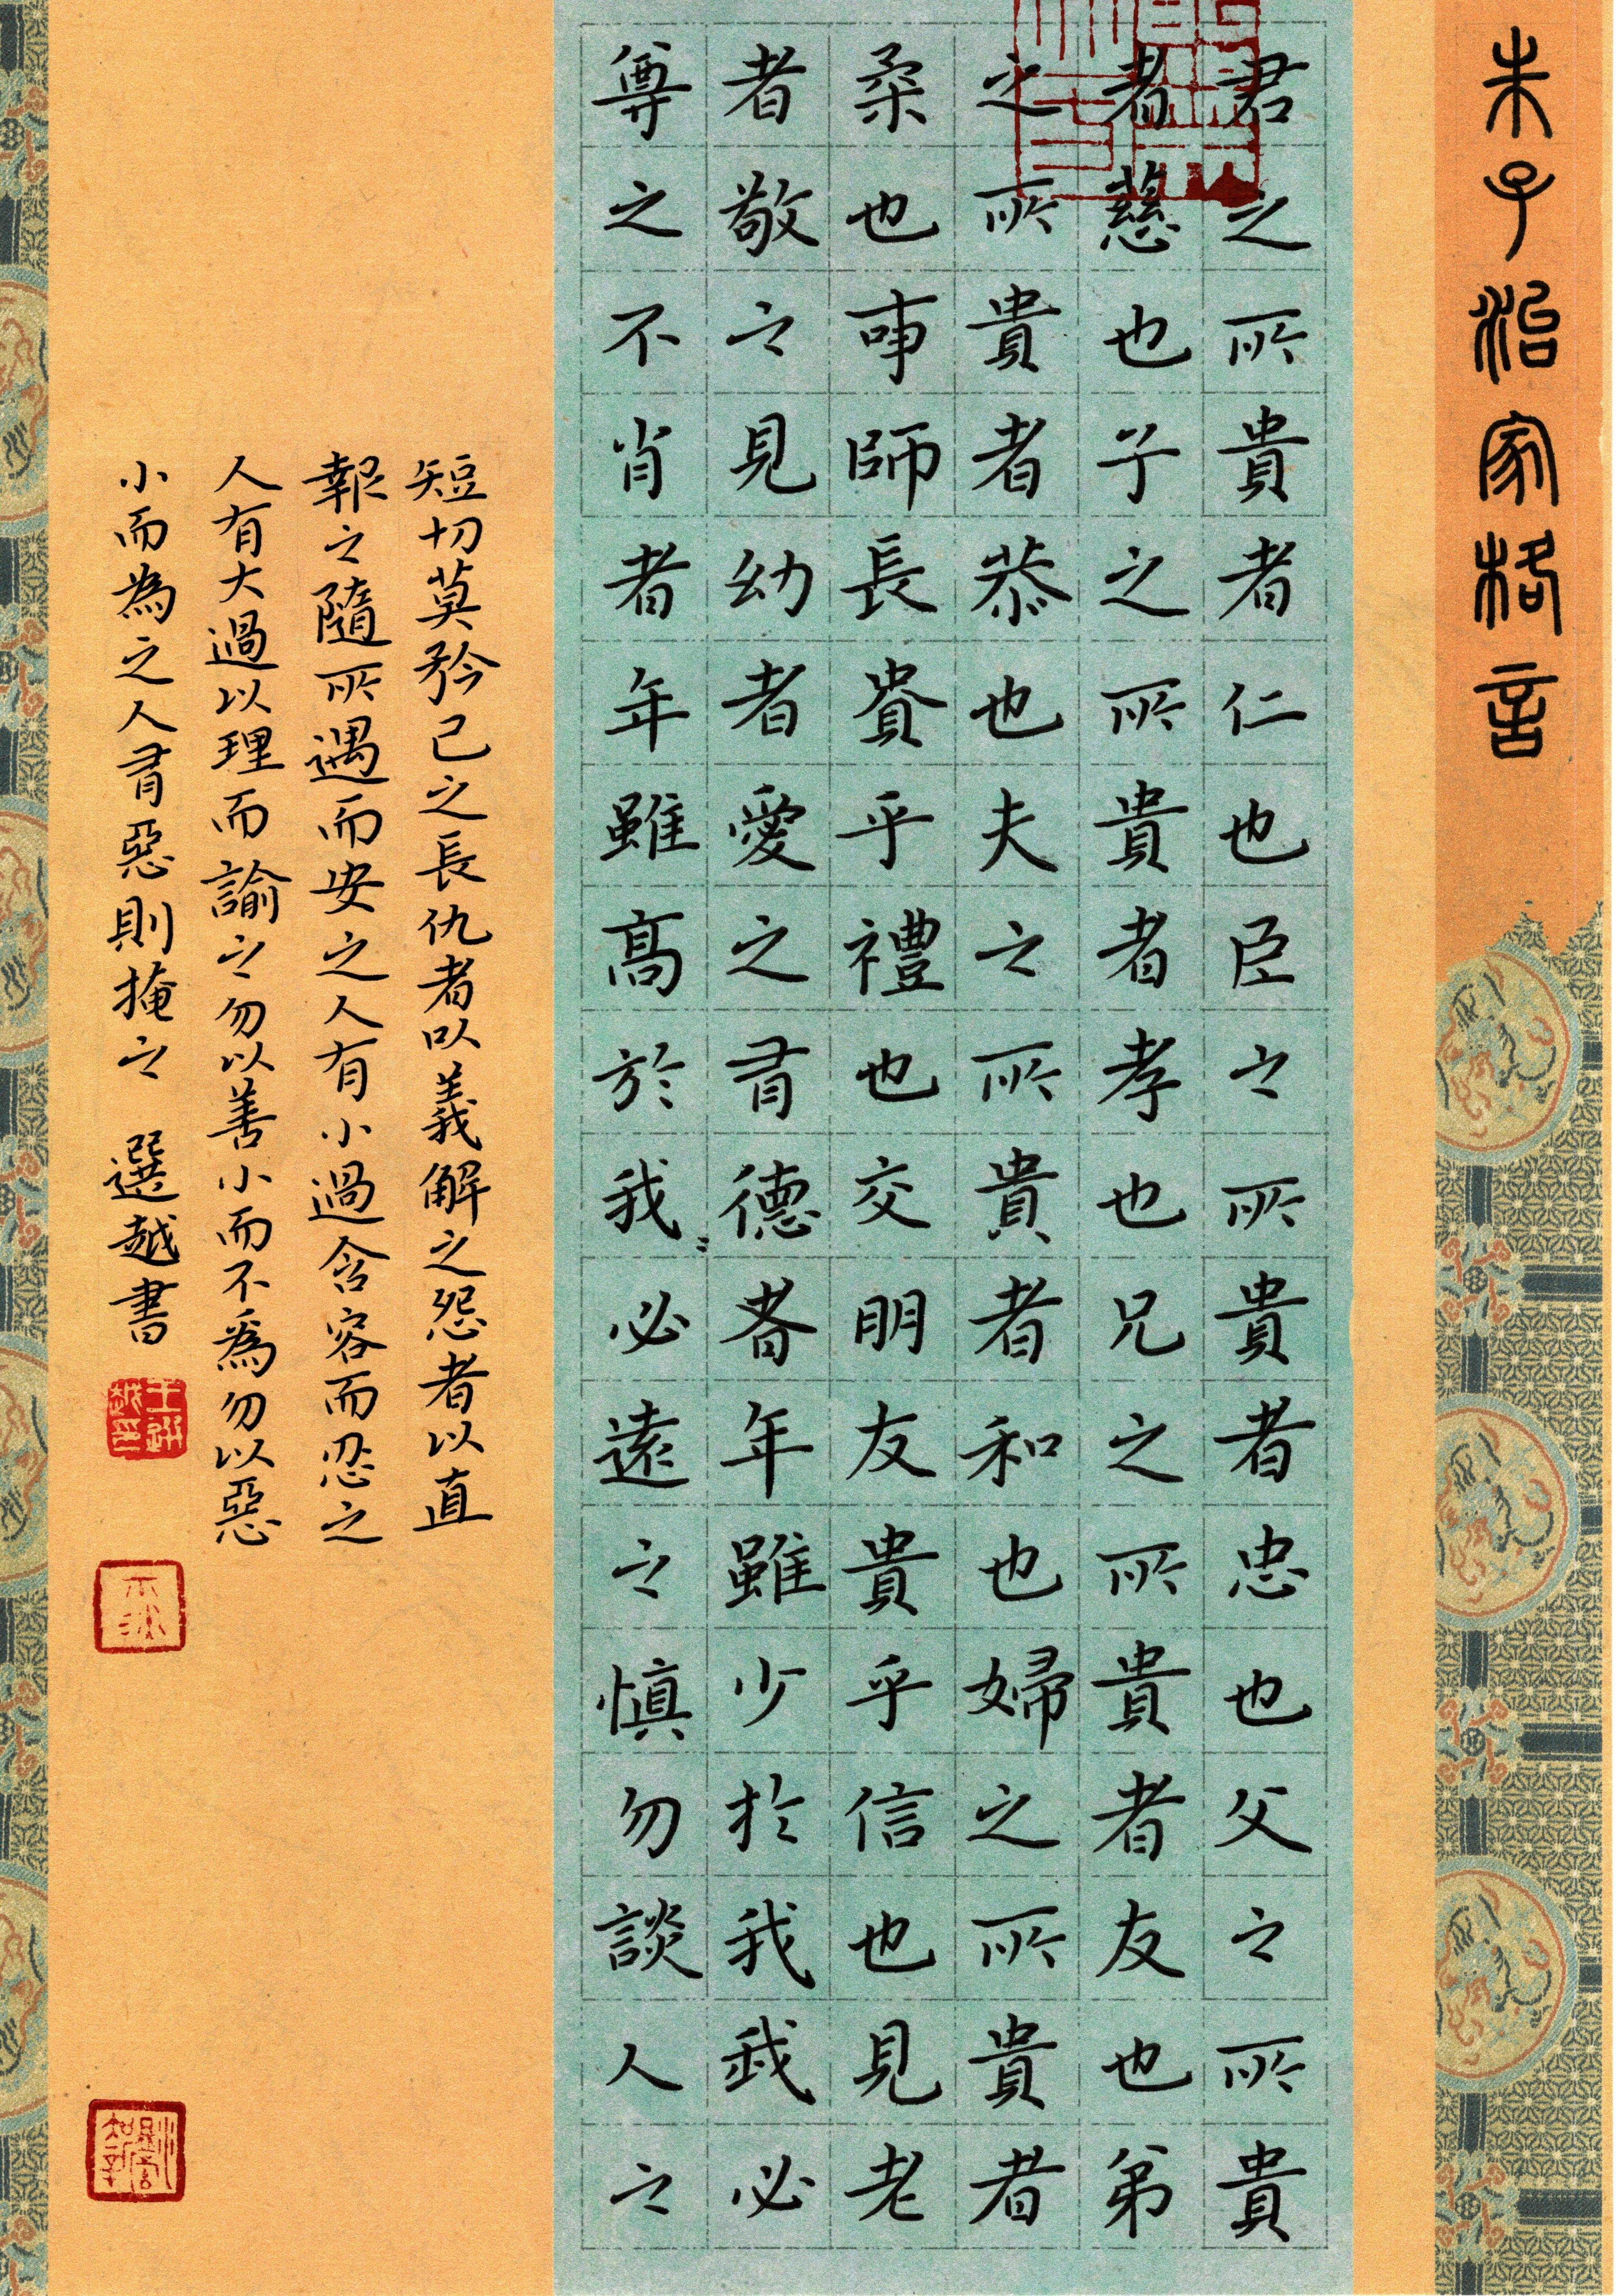 朱子治家格言
君之所貴者仁也臣之所貴者忠也父之所貴
者慈也子之所貴者孝也兄之所貴者友也弟
之所貴者恭也夫之所貴者和也婦之所貴者
柔也事師長貴乎禮也交朋友貴乎信也見老
者敬之見幼者愛之有德者年雖少於我我必
尊之不肖者年雖高於我必遠之慎勿談人之
短切莫矜己之長仇者以義解之怨者以直
報之隨所遇而安之人有小過含容而忍之
人有大過以理而諭之勿以善小而不為勿以惡
小而為之人有惡則掩之 選越書